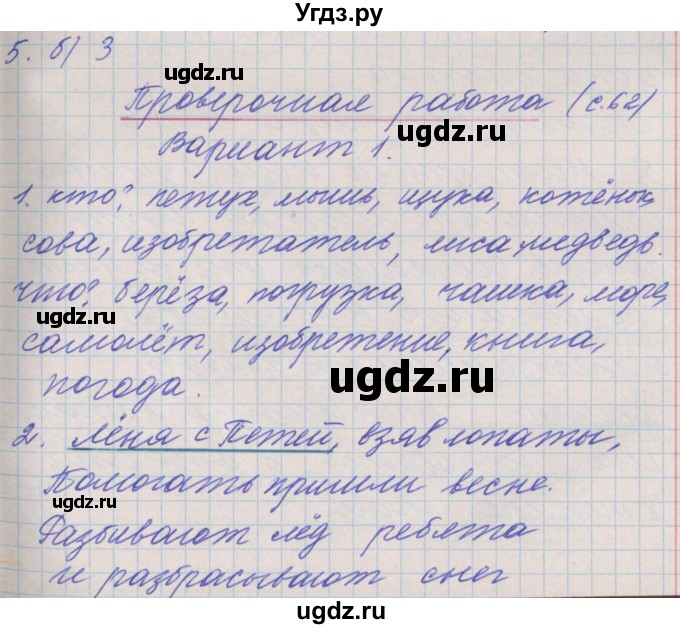 Угдз.ру
5. б) 3
ugdz.ru
Проверочная работа (с.62)
ugdz.ru
Вариант 1.
1. кто? петух, мышь, щука, котёнок,
сова, изобретатель, лиса, медведь.
что? берёза, погрузка, чашка, море,
ugdz.ru
самолёт, изобретение, книга,
ugdz.ru
погода.
2. Лёня с Петей, взяв лопаты,
Помогать пришли весне.
ugdz.ru
Разбивают лёд ребята
и разбрасывают снег
ugdz.ru